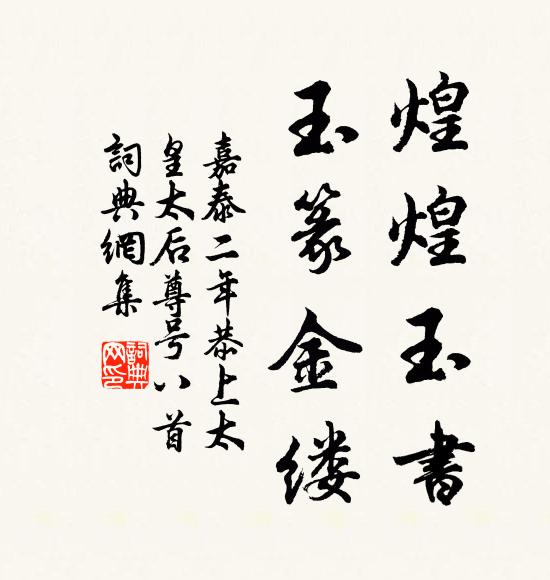 煌煌玉書
玉篆金缕
嘉泰二年恭上太
皇太后尊号八首
詞典網集
詞典网印